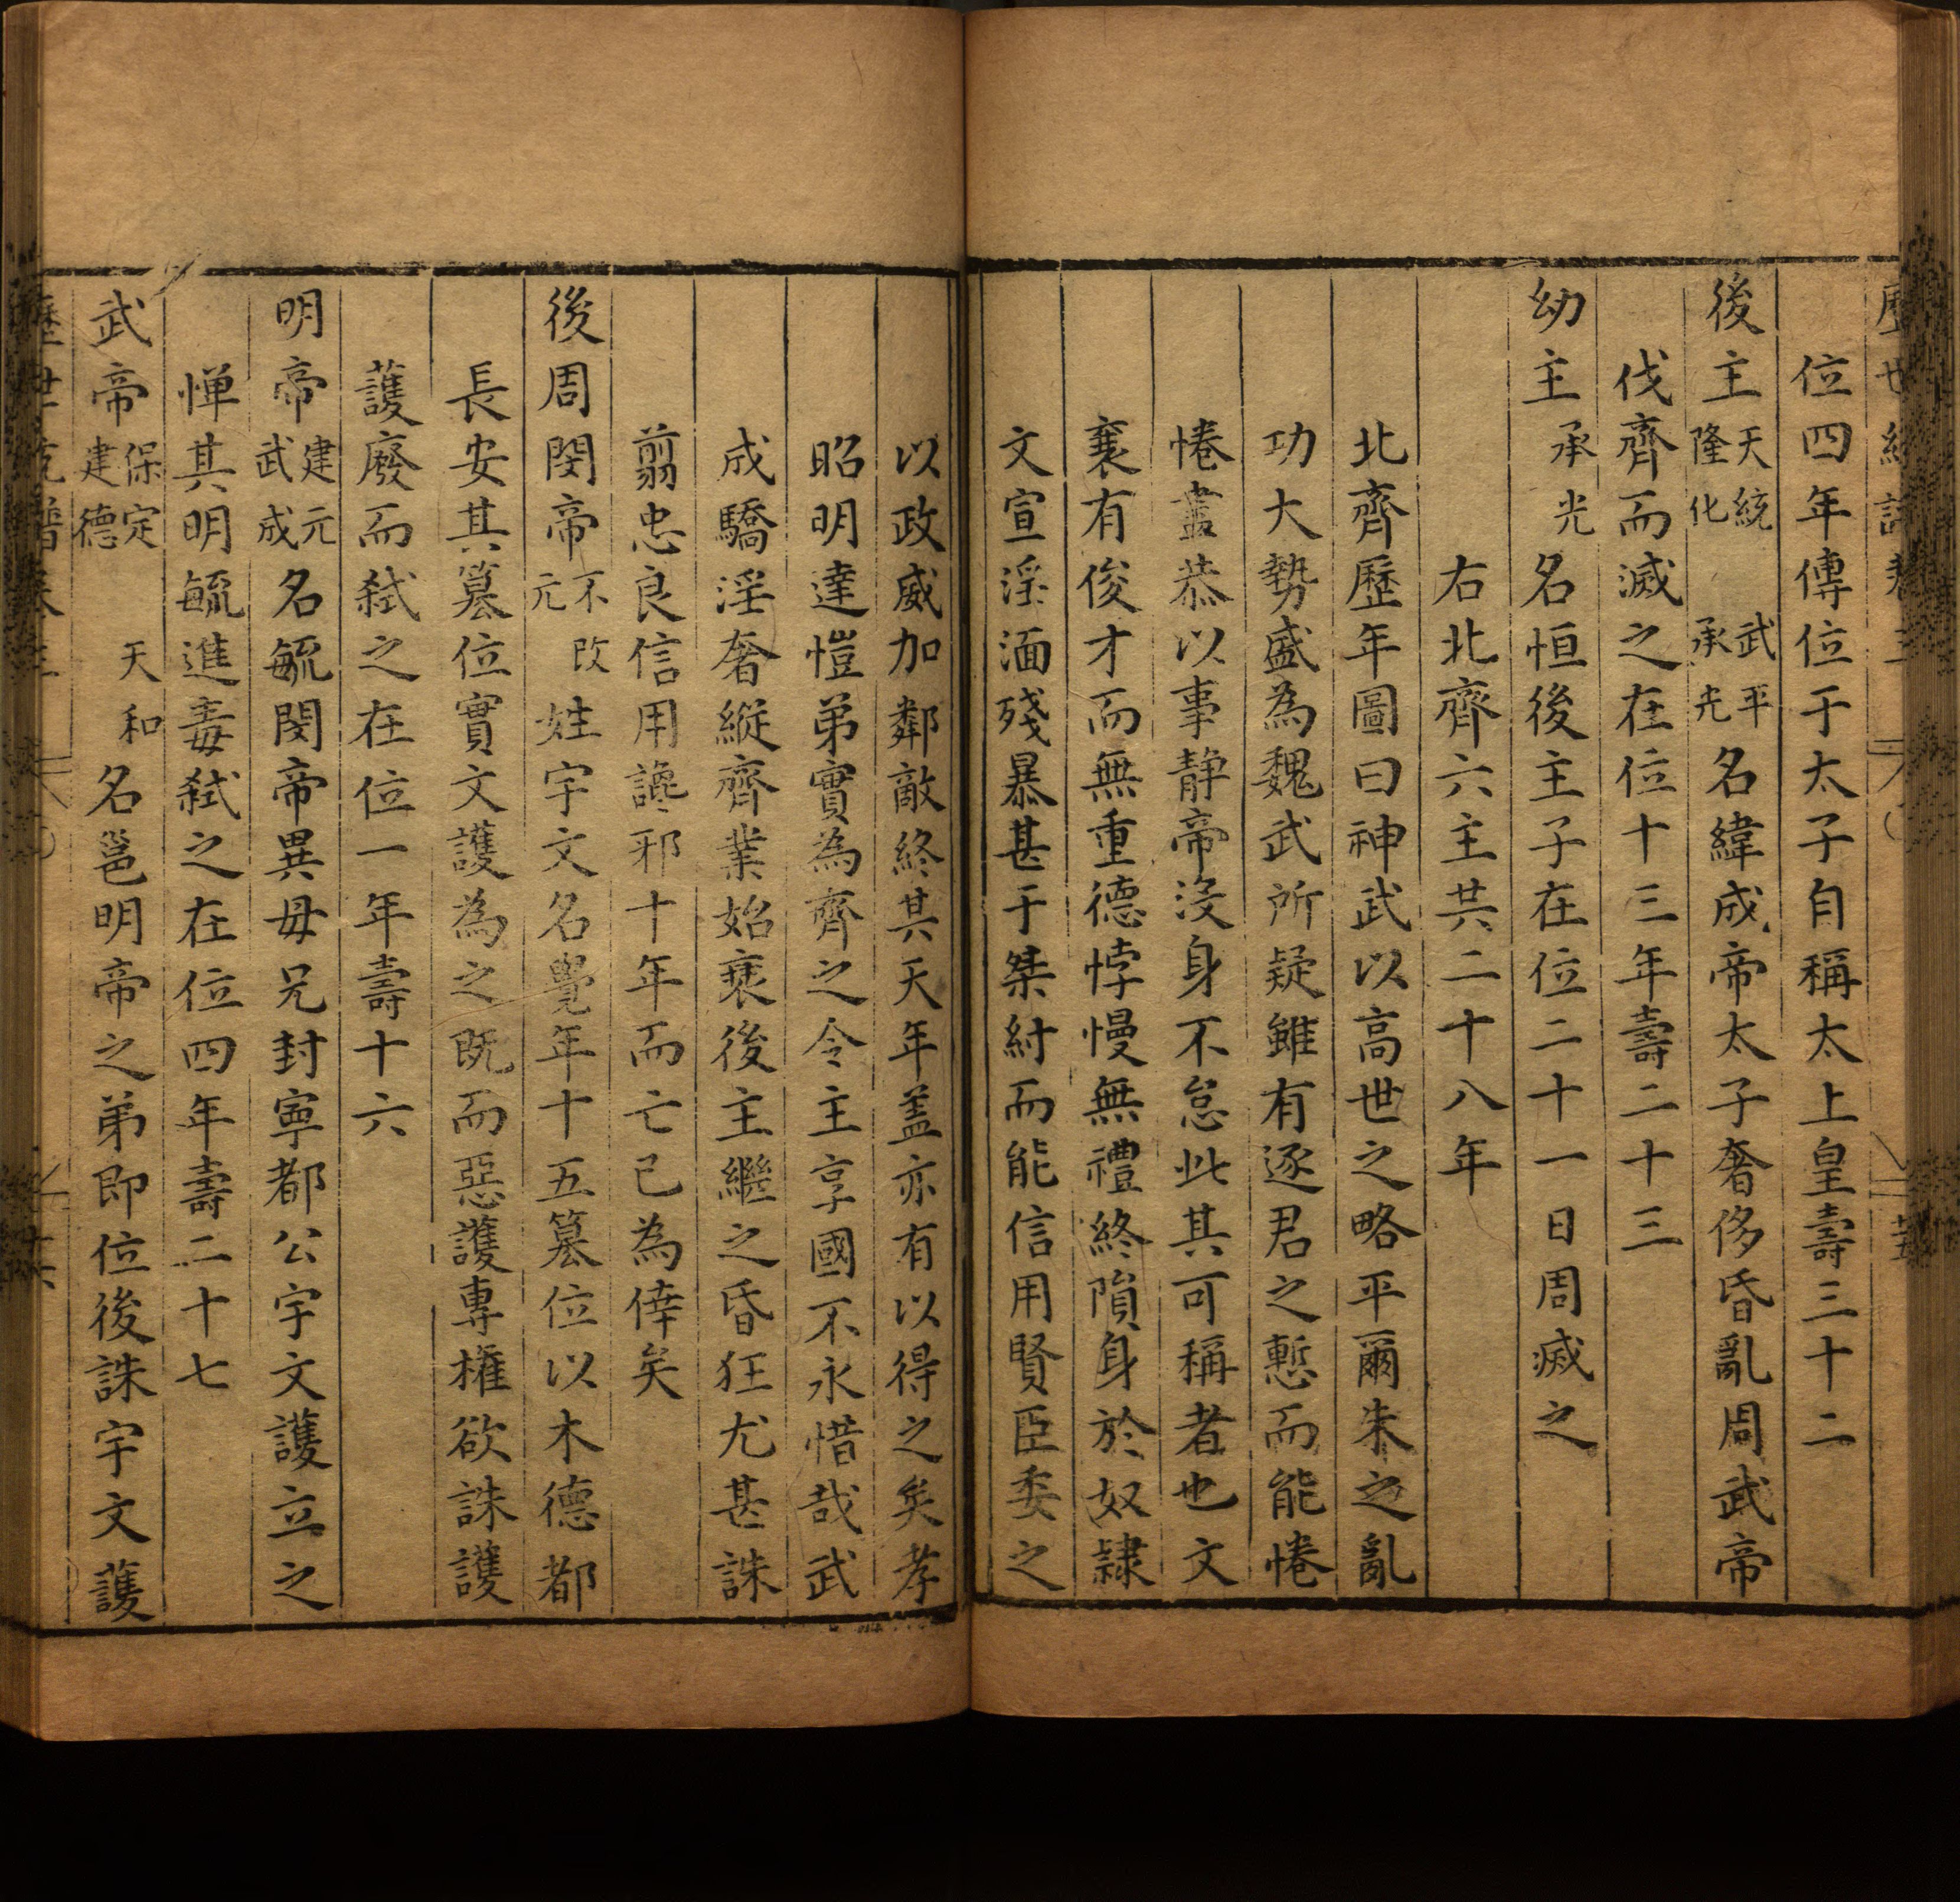 位四年傳位于太子自稱太上皇壽三十二
後主天統隆化武平承光名緯成帝太子奢侈昏亂周武帝
伐齊而滅之在位十三年壽二十三
幼主承光名恒後主子在位二十一日周滅之
右北齊六主共二十八年
北齊歷年圖曰神武以高世之略平爾朱之亂
功大勢盛為魏武所疑雖有逐君之慙而能惓
惓盡恭以事静帝没身不怠此其可稱者也文
襄有俊才而無重德悖慢無禮終隕身於奴隸
文宣淫湎殘暴甚于桀紂而能信用賢臣委之
以政威加鄰敵終其天年盖亦有以得之矣孝
昭明達愷弟實為齊之令主享國不永惜哉武
成驕淫奢縱齊業始衰後主繼之昏狂尤甚誅
翦忠良信用讒邪十年而亡已為倖矣
後周閔帝不改元姓宇文名覺年十五篡位以木德都
長安其篡位實文護為之既而惡護專權欲誅護
護廢而弑之在位一年壽十六
明帝建元武成名毓閔帝異毋兄封寧都公宇文護立之
惮其明毓進毒弑之在位四年壽二十七
武帝保定建德天和名邕明帝之弟即位後誅宇文護